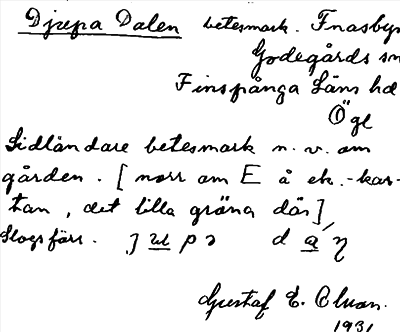 Djupa Dalen betesmark. Fnasbyn
Godegårds sn
Finspånga Läns hd
Ögl
Sidländare betesmark n. v. om
gården. [norr om E å ek.-kar-
tan, det lilla gröna där]
Slogs förr.
Gustaf E. Olson.
1931